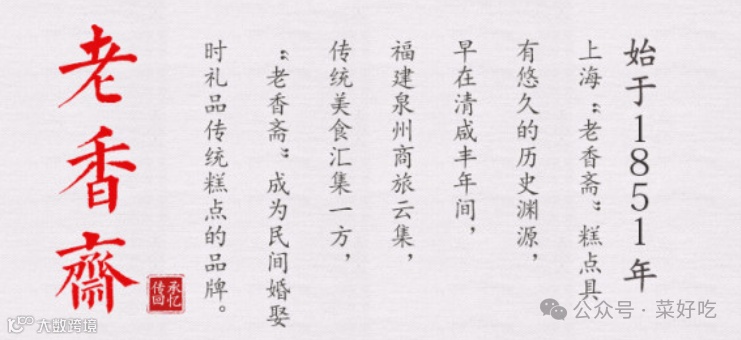 始于1851年
上海“老香斋”糕点具
有悠久的历史渊源，
早在清咸丰年间，
福建泉州商旅云集，
传统美食汇集一方，
“老香斋”成为民间婚娶
时礼品传统糕点的品牌。
老香齋
承忆
传回
公众号·菜好吃
大数跨境